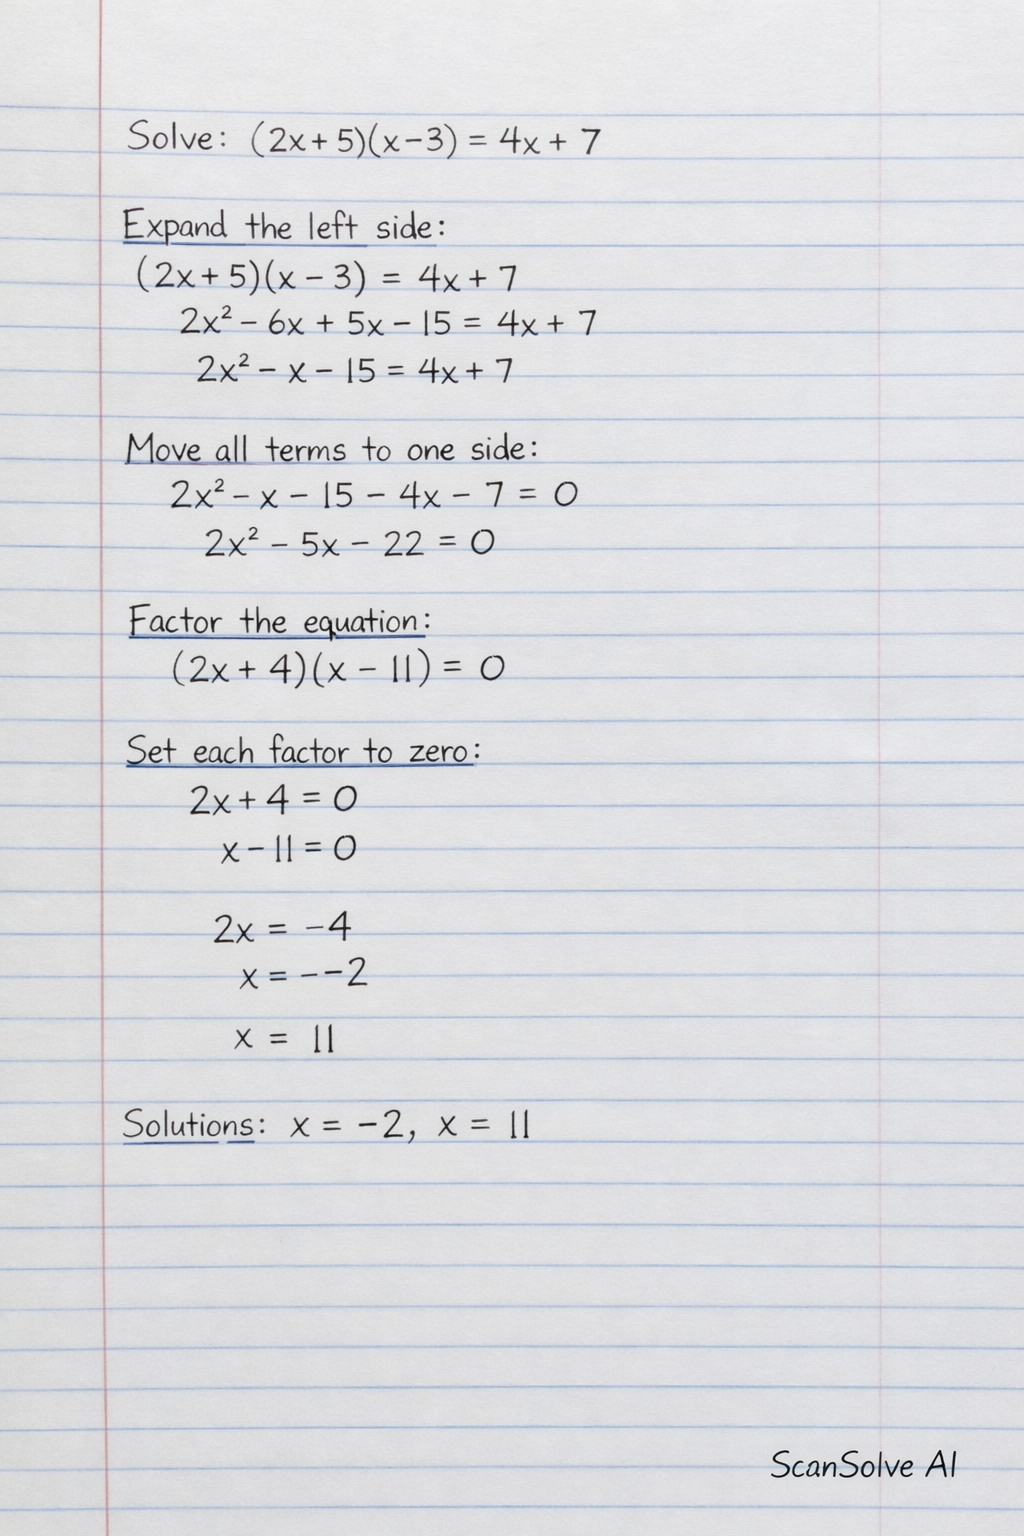 Solve: (2x + 5)(x - 3) = 4x + 7
Expand the left side:
(2x + 5)(x - 3) = 4x + 7
2x² - 6x + 5x - 15 = 4x + 7
2x² - x - 15 = 4x + 7
Move all terms to one side:
2x² - x - 15 - 4x - 7 = 0
2x² - 5x - 22 = 0
Factor the equation:
(2x + 4)(x - 11) = 0
Set each factor to zero:
2x + 4 = 0
x - 11 = 0
2x = -4
x = --2
x = 11
Solutions: x = -2, x = 11
ScanSolve AI